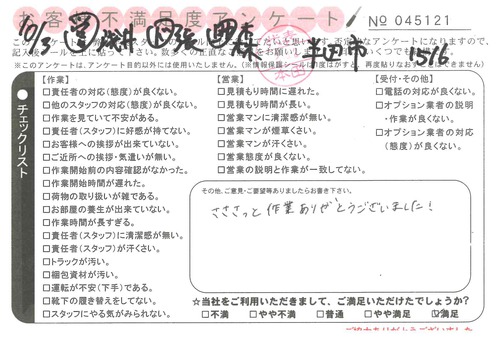 お客様不満足度アンケート! № 045121
10/2 半田市 1516
※このアンケートは、アンケート目的以外には使用いたしません。
チェックリスト
【作業】
□責任者の対応(態度)が良くない。
□他のスタッフの対応(態度)が良くない。
□作業を見ていて不安がある。
□責任者(スタッフ)に好感が持てない。
□お客様への挨拶が出来ていない。
□ご近所への挨拶・気遣いが無い。
□作業開始前の内容確認がなかった。
□作業開始時間が遅れた。
□荷物の取り扱いが雑である。
□お部屋の養生が出来ていない。
□作業時間が長すぎる。
□責任者(スタッフ)に清潔感が無い。
□責任者(スタッフ)が汗くさい。
□トラックが汚い。
□梱包資材が汚い。
□運転が不安(下手)である。
□靴下の履き替えをしてない。
□スタッフにやる気がみられない。
【営業】
□見積もり時間に遅れた。
□見積もり時間が長い。
□営業マンに清潔感が無い。
□営業マンが煙草くさい。
□営業マンが汗くさい。
□営業態度が良くない。
□営業の説明と作業が一致してない。
【受付・その他】
□電話の対応が良くない。
□オプション業者の説明
・作業が良くない。
□オプション業者の対応
(態度)が良くない。
その他、ご意見・ご要望等ありましたらお書き下さい。
ささっと作業ありがとうございました!
☆当社をご利用いただきまして、ご満足いただけたでしょうか?
□不満 □やや不満 □普通 □やや満足 ☑満足
ご協力ありがとうございました